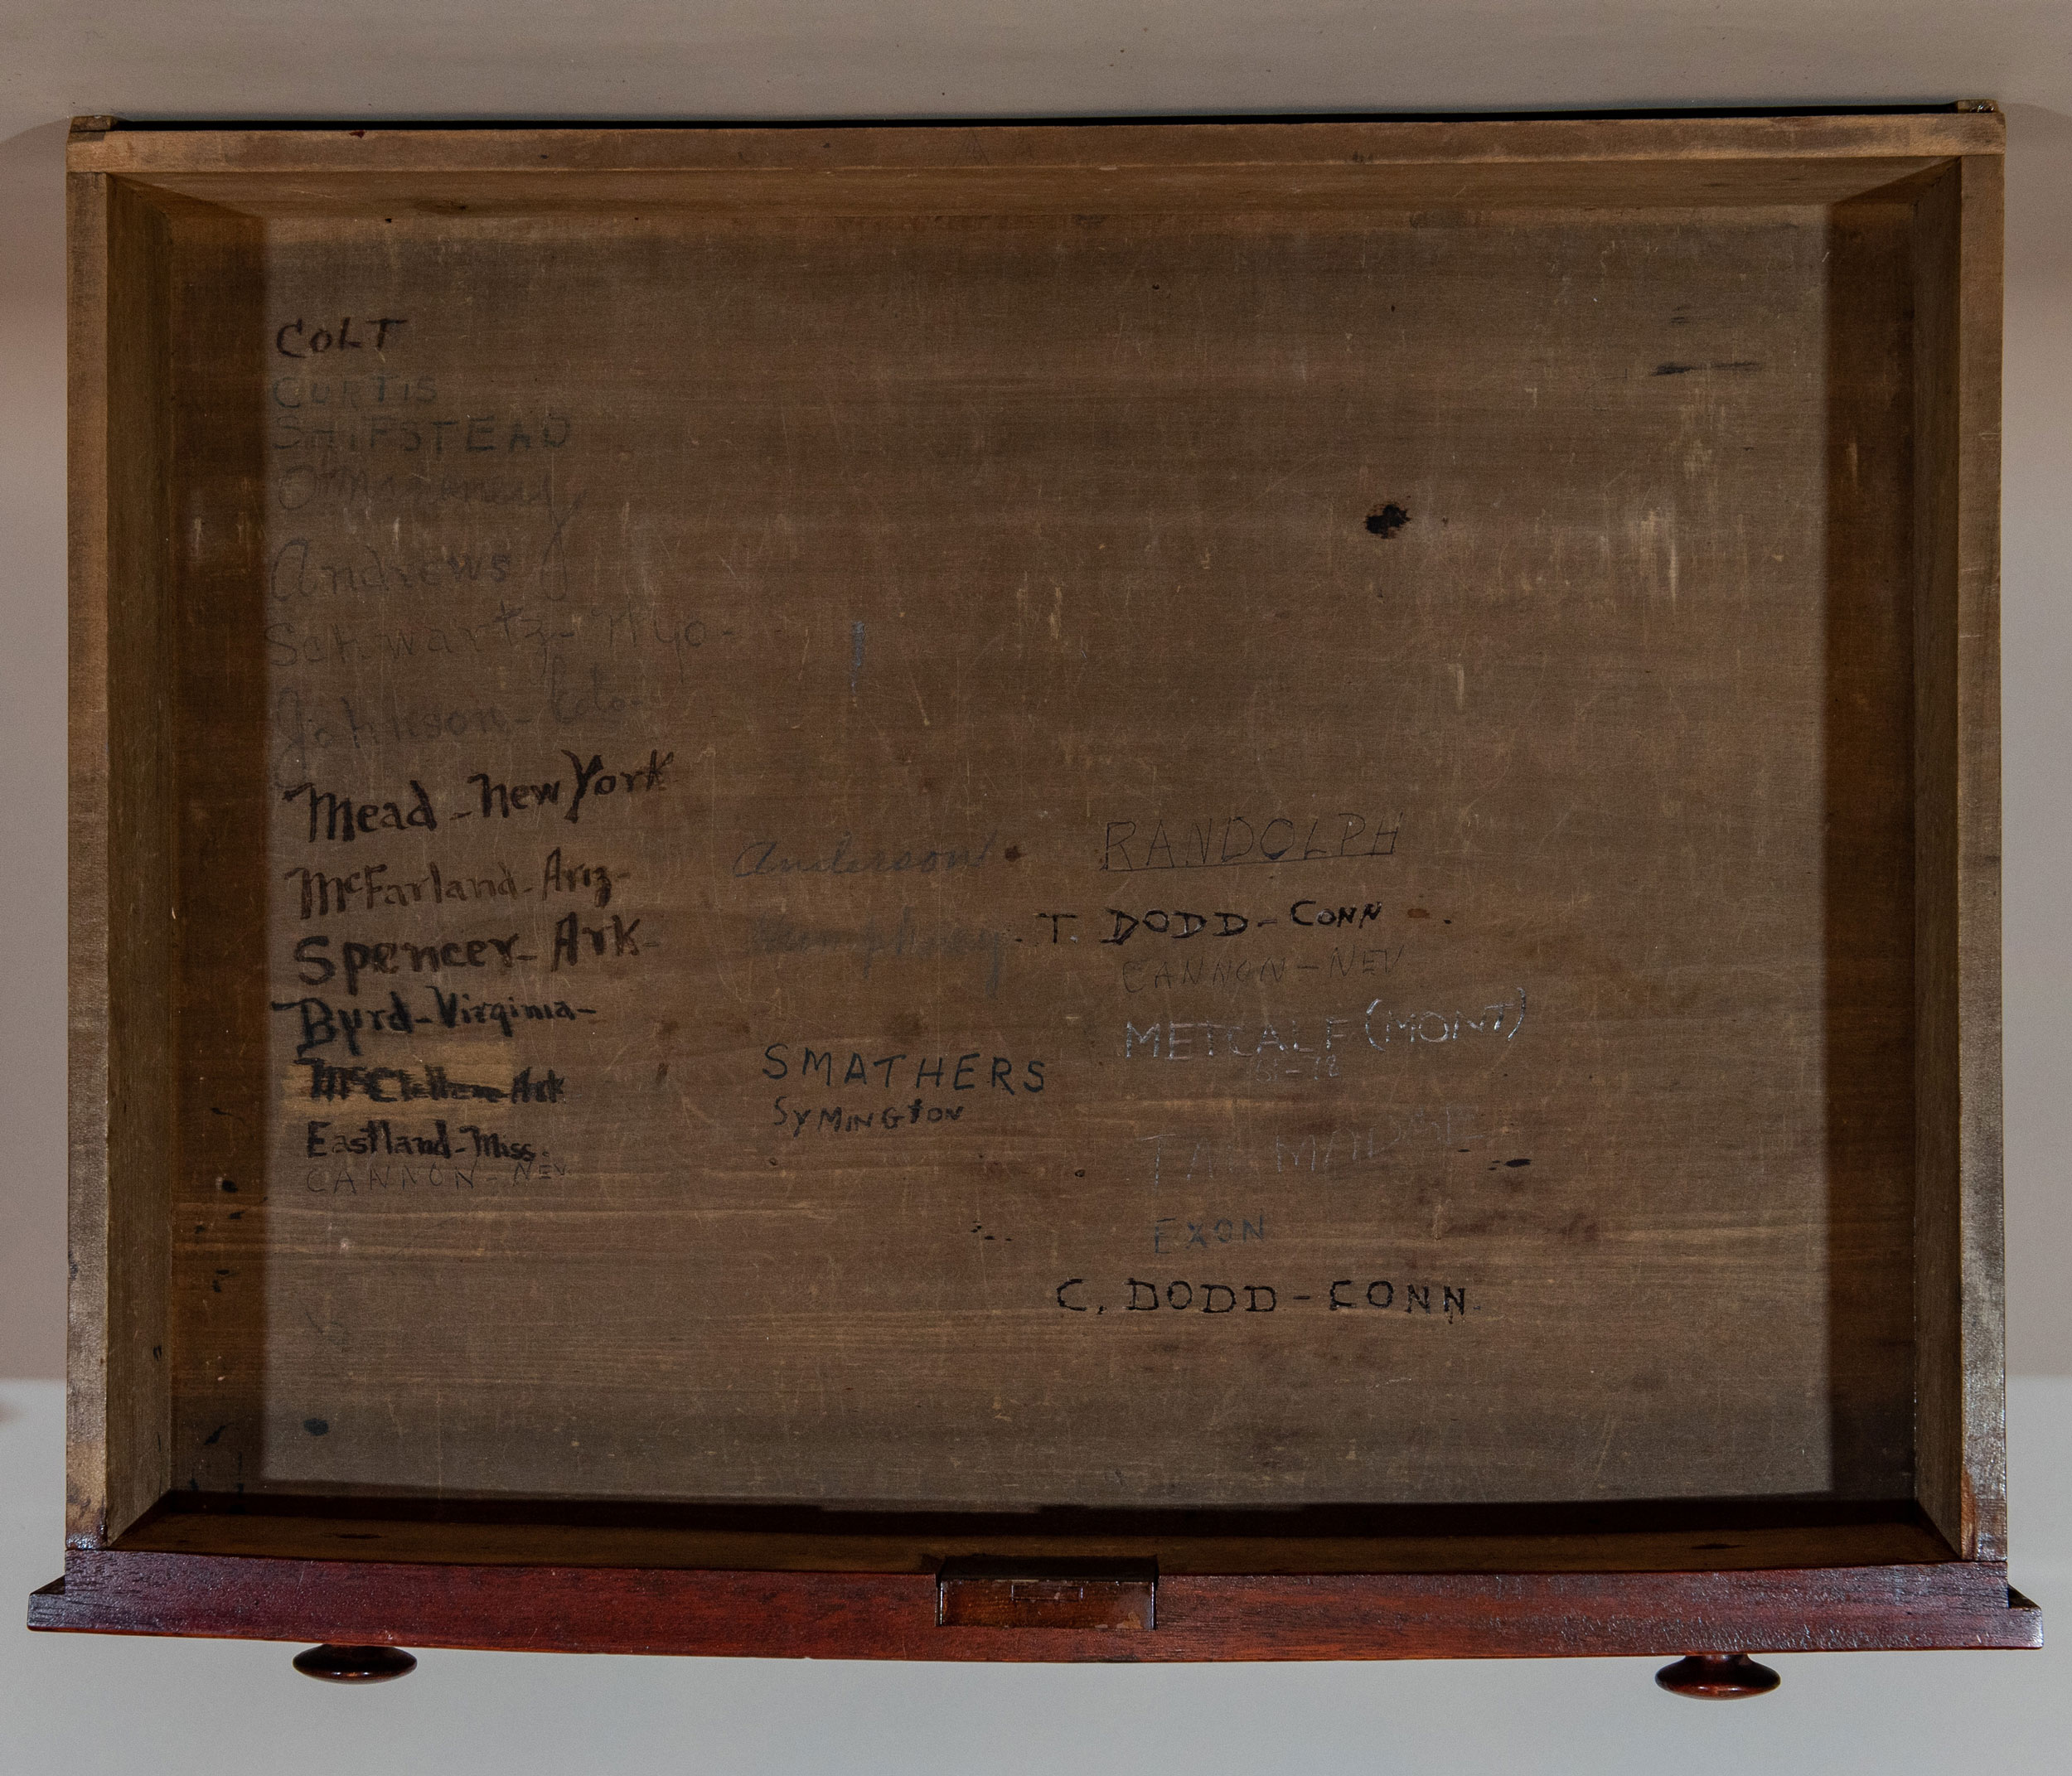 COLT
CURTIS
SHIPSTEAD
O'Mahoney
Andrews
Schwartz - Wyo -
Johnson - Colo -
Mead - New York
McFarland - Ariz -
Spencer - Ark -
Byrd - Virginia -
McClellan Ark
Eastland - Miss.
CANNON - NEV
Anderson
Humphrey
SMATHERS
SYMINGTON
RANDOLPH
T. DODD - CONN
CANNON - NEV
METCALF (MONT)
EXON
C. DODD - CONN.